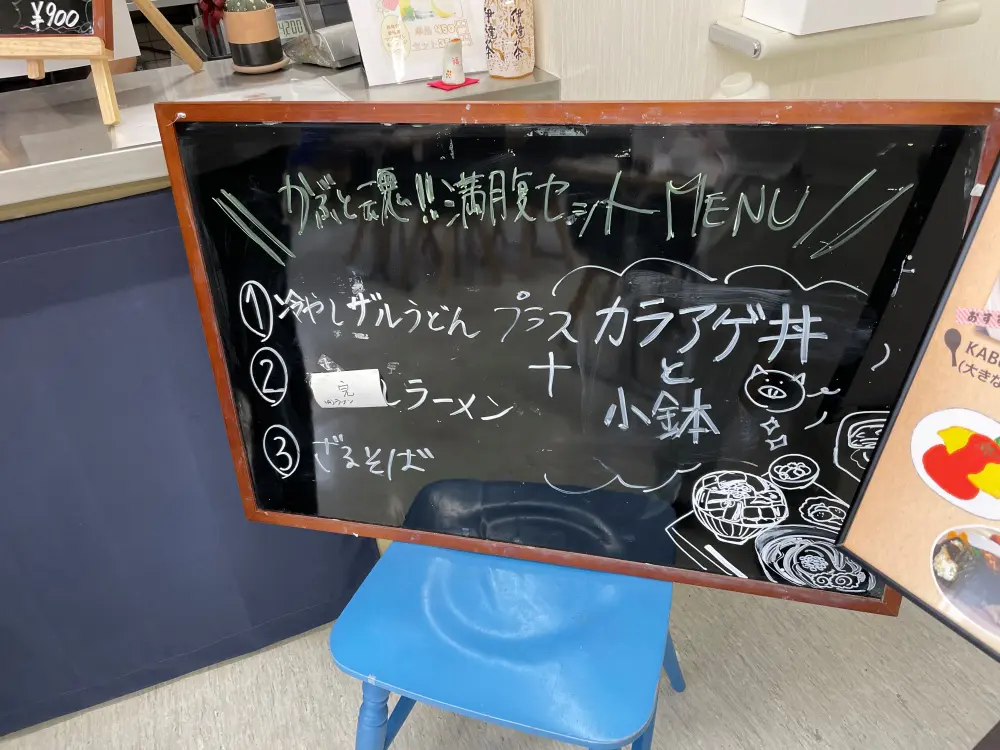 ¥900
4200
伊達茶
福
かぶと魂!!満腹セットMENU
①冷やしザルうどん プラス カラアゲ丼
+ と
② 完 しラーメン 小鉢
③ ざるそば
おす
KAB
(大きな